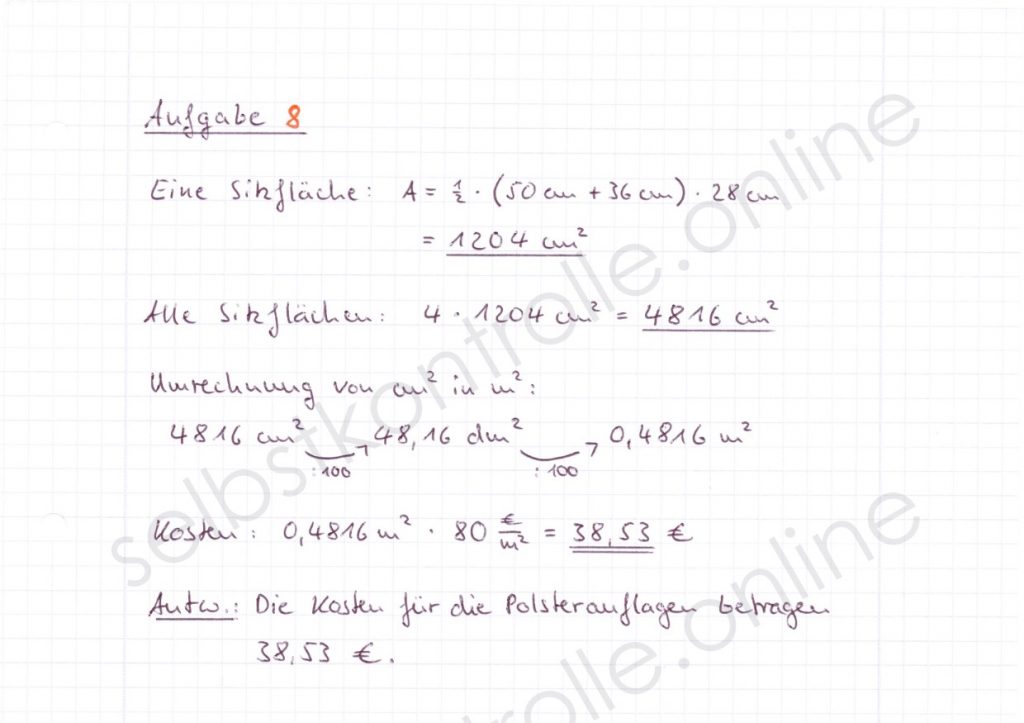 Aufgabe 8
Eine Sitzfläche: A = 1/2 · (50 cm + 36 cm) · 28 cm
= 1204 cm²
Alle Sitzflächen: 4 · 1204 cm² = 4816 cm²
Umrechnung von cm² in m²:
4816 cm² 48,16 dm² 0,4816 m²
:100 :100
Kosten: 0,4816 m² · 80 €/m² = 38,53 €
Antw.: Die Kosten für die Polsterauflagen betragen
38,53 €.
selbstkontrolle.online
selbstkontrolle.online